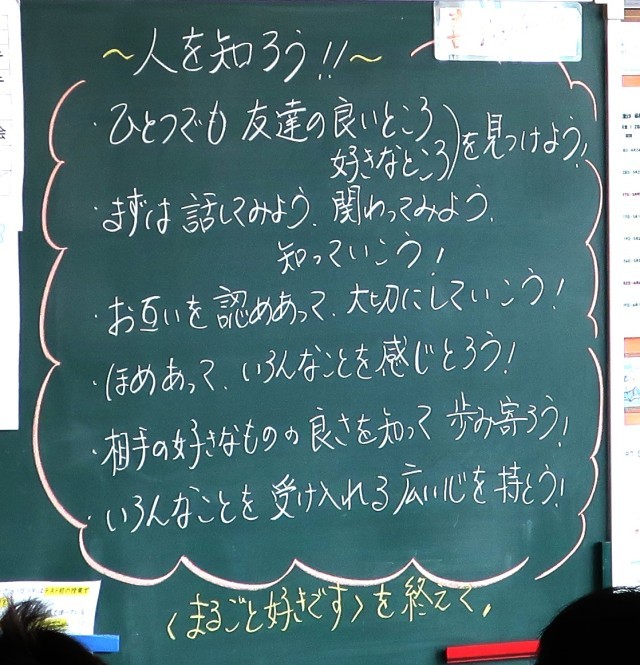 ～人を知ろう!!～
・ひとつでも 友達の良いところ
好きなところ)を見つけよう!
・まずは 話してみよう、関わってみよう、
知っていこう!
・お互いを認めあって、大切にしていこう!
・ほめあって、いろんなことを感じとろう!
・相手の好きなものの良さを知って 歩み寄ろう!
・いろんなことを 受け入れる広い心を持とう!
〈まるごと好きです〉を終えて。